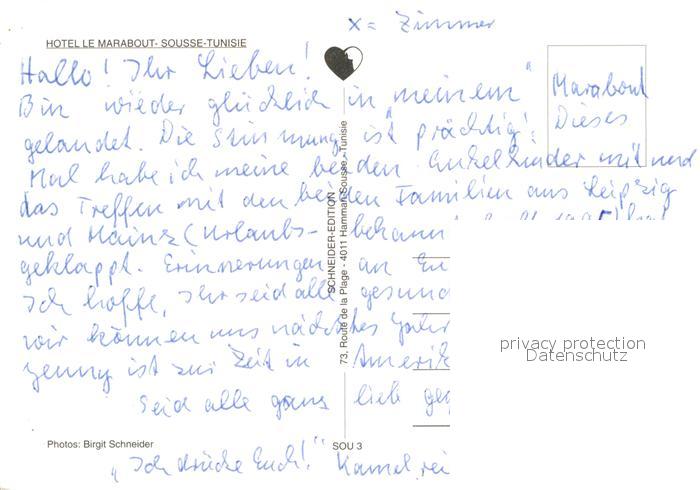 x = Zimmer
HOTEL LE MARABOUT- SOUSSE-TUNISIE
Hallo! Ihr Lieben!
Bin wieder glücklich in "meinem" Marabout
gelandet. Die Stimmung ist prächtig! Dieses
Mal habe ich meine beiden Enkelkinder mit und
das Treffen mit den beiden Familien aus Leipzig
und Mainz (Urlaubs- bekann
geklappt. Erinnerungen an Eu
Ich hoffe, Ihr seid alle gesund
wir können uns nächstes Jahr
Jenny ist zur Zeit in Amerik
Seid alle ganz lieb geg
SCHNEIDER-EDITION
73, Route de la Plage - 4011 Hammam Sousse - Tunisie
privacy protection
Datenschutz
Photos: Birgit Schneider
SOU 3
"Ich drücke Euch!" Kamel rei